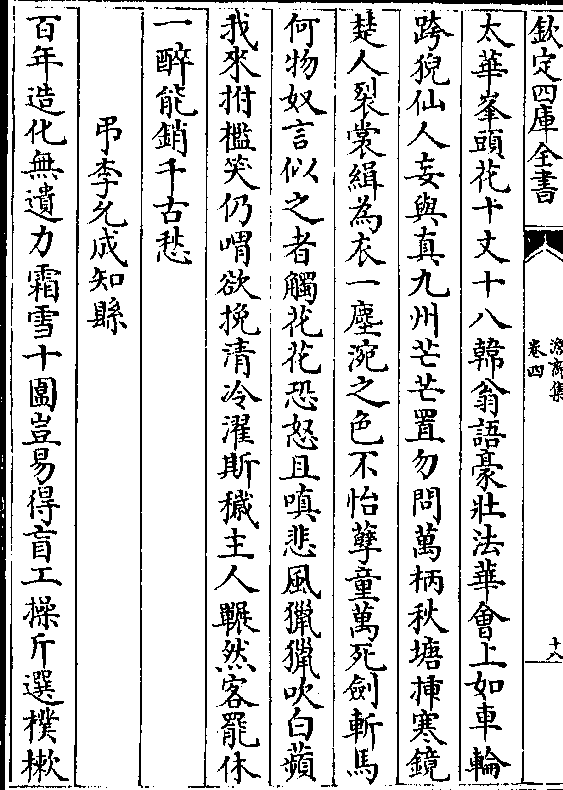 欽定四庫全書
澹齋集
卷四
十八
太華峯頭花十丈十八韓翁語豪壯法華會上如車輪
跨猊仙人妄與真九州芒芒置勿問萬柄秋塘挿寒鏡
楚人裂裳緝為衣一塵涴之色不怡孽童萬死劍斬馬
何物奴言似之者觸花花恐怒且嗔悲風獵獵吹白蘋
我來拊檻笑仍喟欲挽清冷濯斯穢主人冁然客罷休
一醉能銷千古愁
弔李允成知縣
百年造化無遺力霜雪十圍豈易得盲工操斤選樸樕